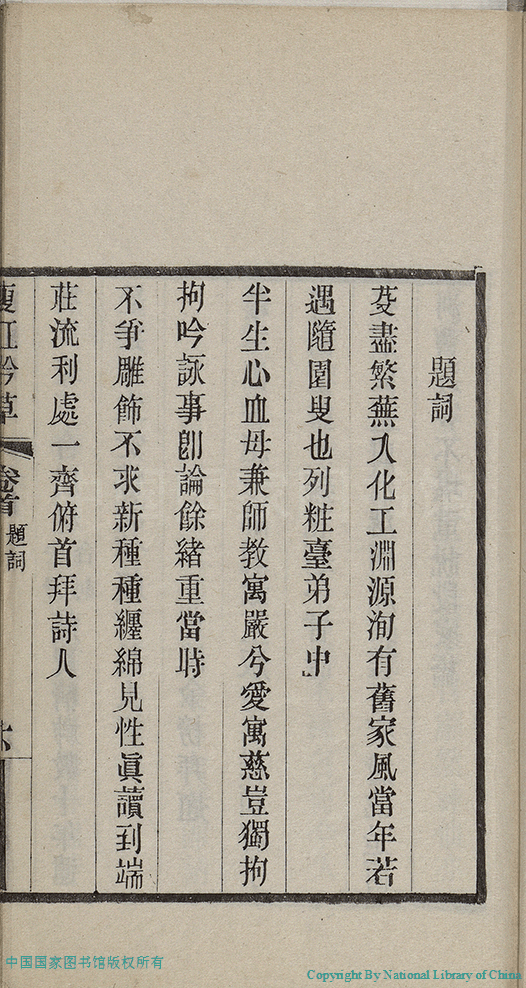 題詞
芟盡繁蕪入化工淵源洵有舊家風當年若
遇隨園叟也列粧臺弟子中
半生心血母兼師教寓嚴兮愛寓慈豈獨拘
拘吟詠事卽論餘緒重當時
不爭雕飾不求新種種纏綿見性眞讀到端
莊流利處一齊俯首拜詩人
吟草
卷首
題詞
中国国家图书馆版权所有
Copyright By National Library of China